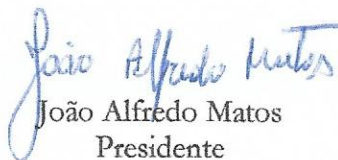 João Alfredo Matos
João Alfredo Matos
Presidente